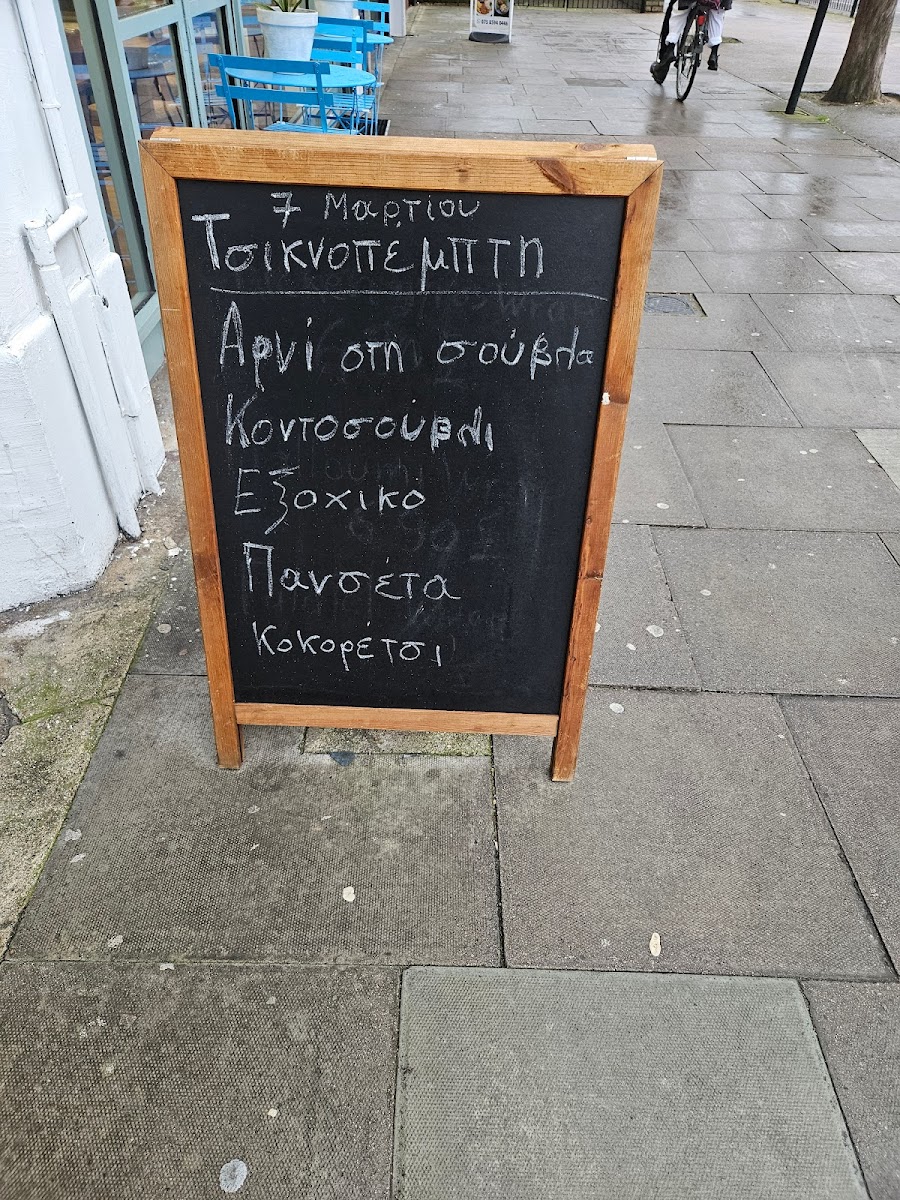 7 Μαρτίου
Τσικνοπέμπτη
Αρνί στη σούβλα
Κοντοσούβλι
Εξοχικό
Πανσέτα
Κοκορέτσι